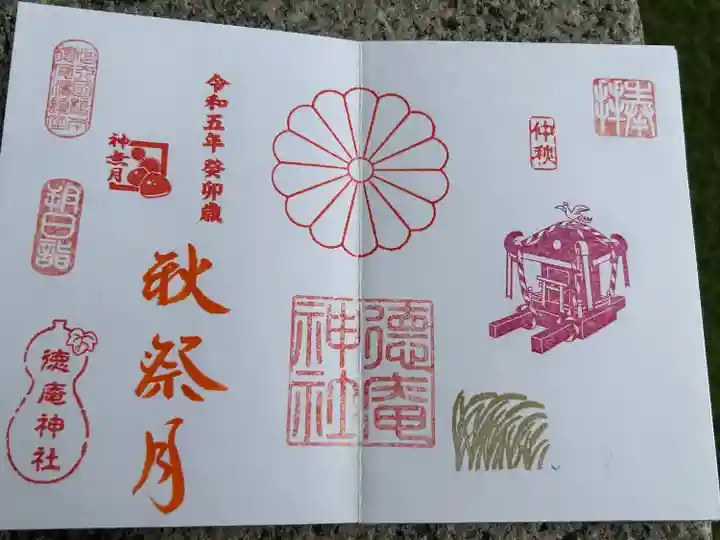 奉拝
仲秋
徳庵
神社
令和五年 癸卯歳
神無月
秋祭月
朔日詣
徳庵神社